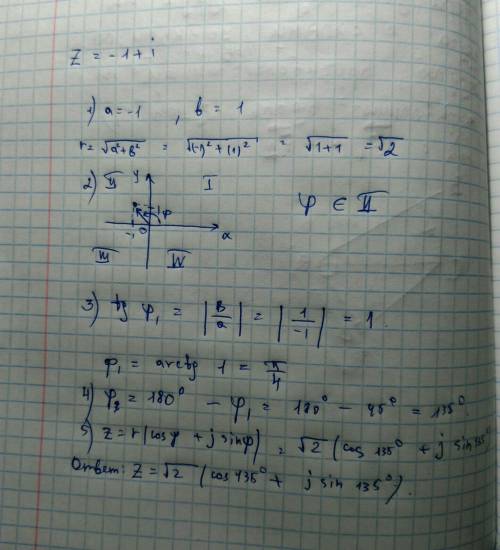 z = -1 + i
1) a = -1 , b = 1
r = √(a² + b²) = √((-1)² + (1)²) = √(1+1) = √2
2) II y I
φ ∈ II
φ
-1 0 x
III IV
3) tg φ₁ = |b/a| = |1/-1| = 1.
φ₁ = arctg 1 = π/4
4) φ₂ = 180° - φ₁ = 180° - 45° = 135°
5) z = r(cos φ + j sin φ) = √2 (cos 135° + j sin 135°)
Ответ: z = √2 (cos 135° + j sin 135°).